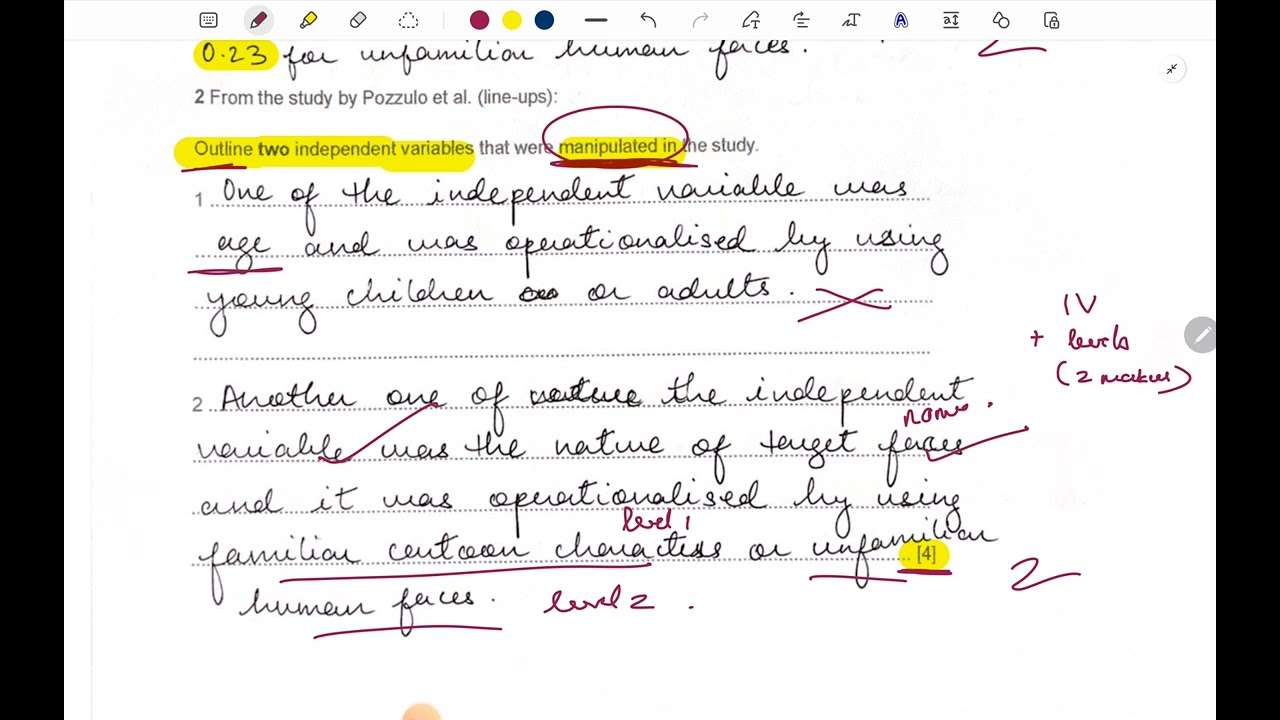 0.23 for unfamiliar human faces.
2
2 From the study by Pozzulo et al. (line-ups):
Outline two independent variables that were manipulated in the study.
1 One of the independent variable was
age and was operationalised by using
young children or adults.
IV
+ levels
(2 marks)
2 Another one of nature the independent
name.
variable was the nature of target faces
and it was operationalised by using
level 1
familiar cartoon characters or unfamiliar [4]
2
human faces. level 2.